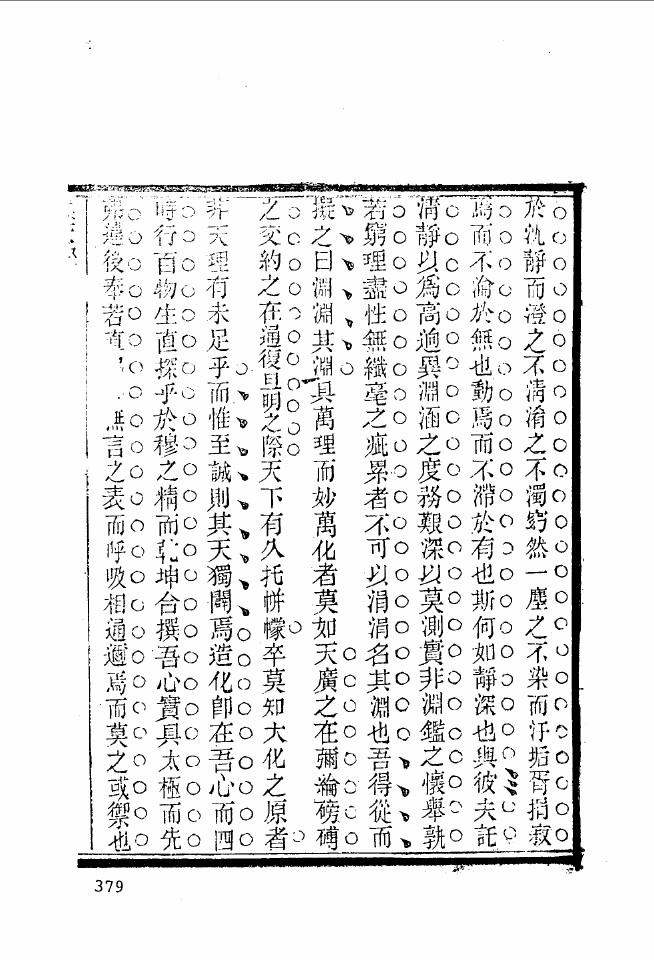 於沈靜而澄之不淸淆之不濁窈然一塵之不染而汙垢胥捐寂
焉而不淪於無也動焉而不滯於有也斯何如靜深也與彼夫託
淸靜以爲高適異淵涵之度務艱深以莫測實非淵鑑之懷舉孰
若窮理盡性無纖毫之疵累者不可以涓涓名其淵也吾得從而
擬之曰淵淵其淵具萬理而妙萬化者莫如天廣之在彌淪磅礴
之交約之在通復旦明之際天下有久托帡幪卒莫知大化之原者
非天理有未足乎而惟至誠則其天獨闢焉造化卽在吾心而四
時行百物生直探乎於穆之精而乾坤合撰吾心實具太極而先
弗違後奉若直無言之表而呼吸相通邇焉而莫之或禦也
379